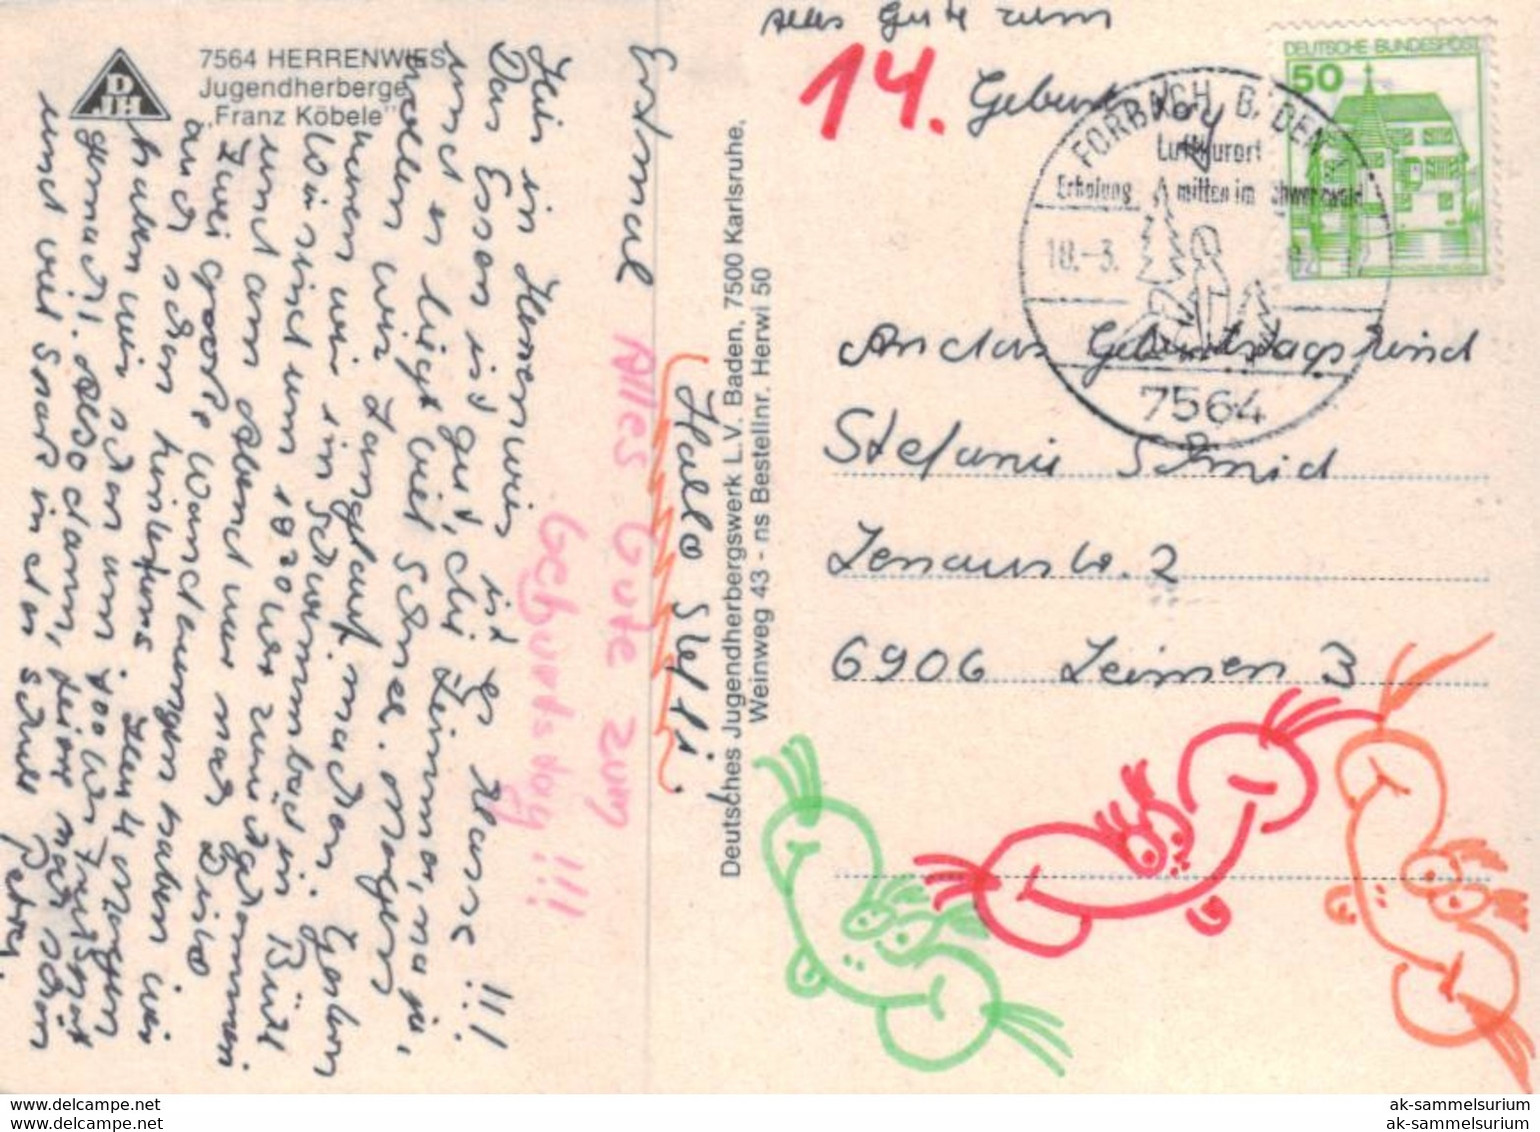 7564 HERRENWIES
Jugendherberge
„Franz Köbele"
DJH
Hallo Steffi,
Erstmal Alles Gute zum
Gebürdsdag !!!
Hier in Herrenwies ist es Klasse !!!
Das Essen ist gut, die Zimmer, na ja,
und es liegt viel Schnee. Morgen
wollen wir Langlauf machen. Gestern
waren wir im Schwimmbad in Bühl
Wir sind um 1820 Uhr zurückgekommen
und am Abend war noch Disco
Zwei große Wanderungen haben wir
auch schon hinter uns. Heute Morgen
haben wir schon um 700 Uhr Frühsport
gemacht. Also dann, feire noch schön
und viel Spaß in der Schule
Petra.
Deutsches Jugendherbergswerk L.V. Baden, 7500 Karlsruhe,
Weinweg 43 - ns Bestellnr. Herwi 50
Alles Gute zum
14. Geburtstag
DEUTSCHE BUNDESPOST
50
FORBACH, BADEN
Luftkurort
Erholung mitten im Schwarzwald
18.-3.
7564
An das Geburtstagskind
Stefanie Schmid
Lenaustr. 2
6906 Leimen 3
ak-sammelsurium.com
ak-sammelsurium.com
ak-sammelsurium
ak-sammelsurium